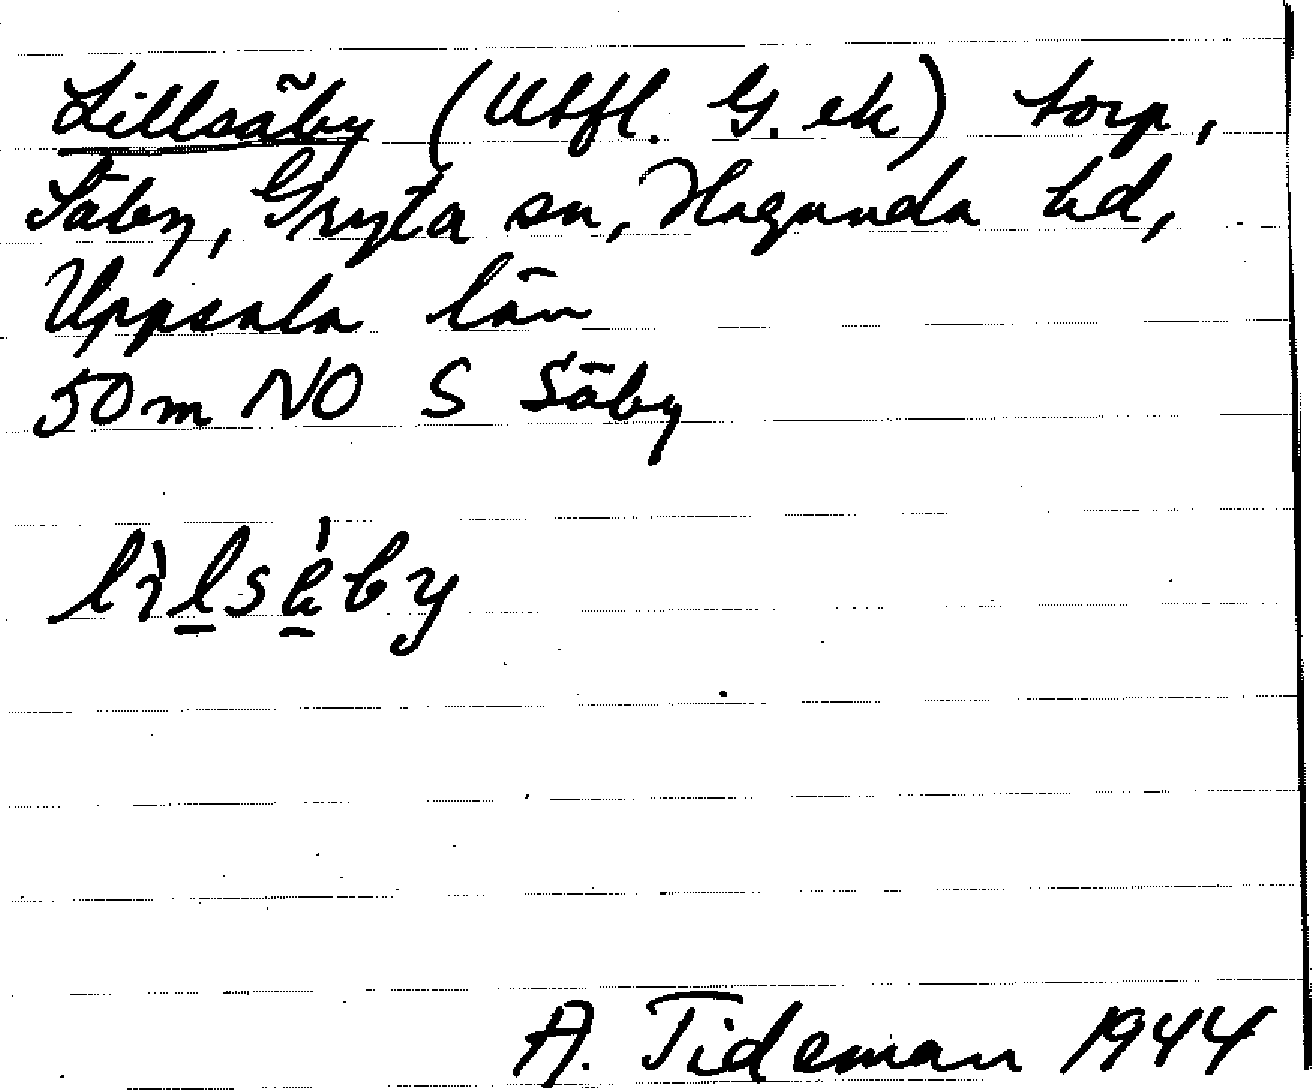 Lillsäby (Utfl. G. ek) torp,
Säby, Gryta sn, Hagunda hd,
Uppsala län
50 m NO S Säby
lìlsä̀by
A. Tideman 1944